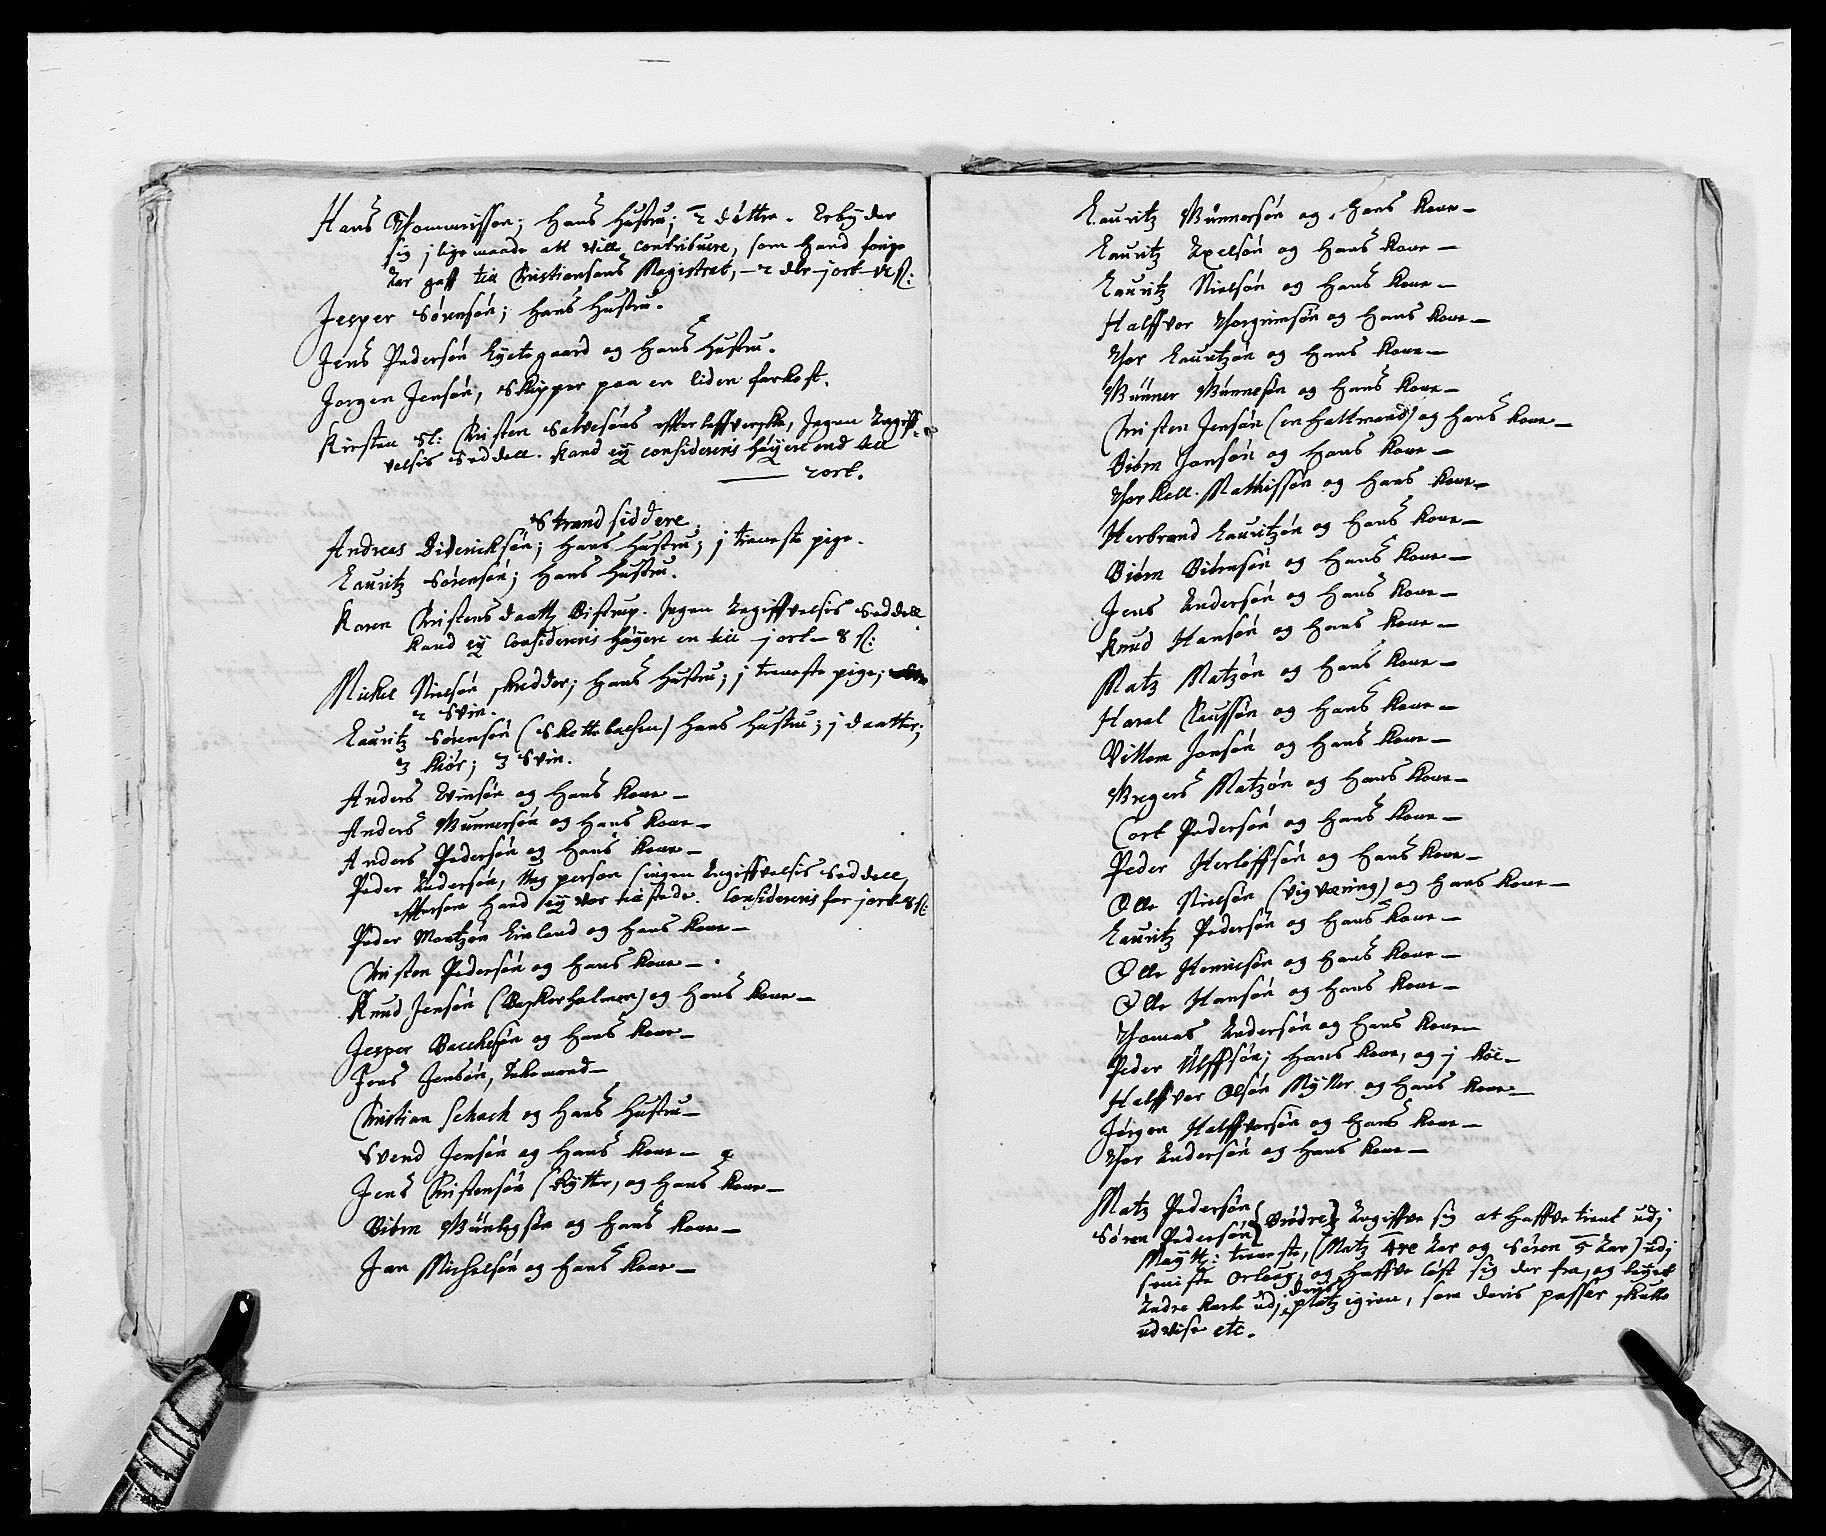 Hans Thommissøn; Hans Hustru; 2 døttre. Erbyder
sig j lige maade att ville contribuere, som Hand forige
Aar gaff till Christiansans Magistrat, – 2 dlr – j ort –
Jesper Sørensøn; Hans Hustru.
Jens Pedersøn og Hans Hustru.
Jørgen Jensøn, Skipper paa en liden farkost.
Kirsten Sl: Christen Salvesøns efterleffverske, Ingen Angiff-
velsis Seddell. Kand ey considereris høyere end till
2 ort.
Strandsiddere.
Andreas Didericksøn; Hans Hustru; j tieneste pige.
Lauritz Sørensøn; Hans Hustru.
Karen Christensdaatt Bistrup. Ingen Angiffvelsis Seddell
Kand ey Considereris høyere en till j ort – 8 s:
Mickel Nielsøn skredder; Hans Hustru; j tieneste pige;
2 Svin.
Lauritz Sørensøn (Skottebachen) Hans Hustru; j daatter;
3 kiør; 3 Svin.
Anders Evinsøn og Hans Kone –
Anders Gunnersøn og Hans Kone –
Anders Pedersøn og Hans Kone –
Peder Andersøn, Ung person (ingen Angiffvelsis Seddell,
effterson Hand ey var tilstede. Considereris for j ort 8 s:
Peder Mortzøn og Hans Kone –
Christen Pedersøn og Hans Kone –
Knud Jensøn (Beskerholmen) og Hans Kone –
Jesper Bacchesøn og Hans Kone –
Jens Jensøn, Enkemand –
Christian Schach og Hans Hustru –
Svend Jensøn og Hans Kone –
Jens Christensøn Skytter, og Hans Kone –
Biørn Gunlegsøn og Hans Kone –
Jan Michelsøn og Hans Kone –
Lauritz Gunnersøn og Hans Kone –
Lauritz Axelsøn og Hans Kone –
Lauritz Nielsøn og Hans Kone –
Halffvor Torgrimsøn og Hans Kone –
Tor Lauritzøn og Hans Kone –
Gunner Gunnesøn og Hans Kone –
Christen Jensøn (en Haltmand) og Hans Kone –
Biørn Jonsøn og Hans Kone –
Torkell Mathissøn og Hans Kone –
Herbrand Lauritzøn og Hans Kone –
Biørn Biørnsøn og Hans Kone –
Jens Andersøn og Hans Kone –
Knud Hansøn og Hans Kone –
Matz Matzøn og Hans Kone –
Haral Claussøn og Hans Kone –
Villom Jonsøn og Hans Kone –
Gregers Matzøn og Hans Kone –
Cort Pedersøn og Hans Kone –
Peder Herloffsøn og Hans Kone –
Olle Nielsøn (Vigværing) og Hans Kone –
Lauritz Pedersøn og Hans Kone –
Olle Henricsøn og Hans Kone –
Olle Hansøn og Hans Kone –
Thomas Andersøn og Hans Kone –
Peder Ulffsøn; Hans Kone, og j Koe –
Halffvor Olsøn Myller og Hans Kone –
Jørgen Halffvorsøn og Hans Kone –
Tor Andersøn og Hans Kone –
Matz Pedersøn
Søren Pedersøn } Brødre } Angiffve sig at Haffve tient udj
Maytt: tieneste, (Matz 4re Aar og Søren 5 Aar) udj
seniste Orlog, og Haffve løst sig der fra, og leyet
Andre karle udj deris platz igien, som deris passer skulle
udvise etc.